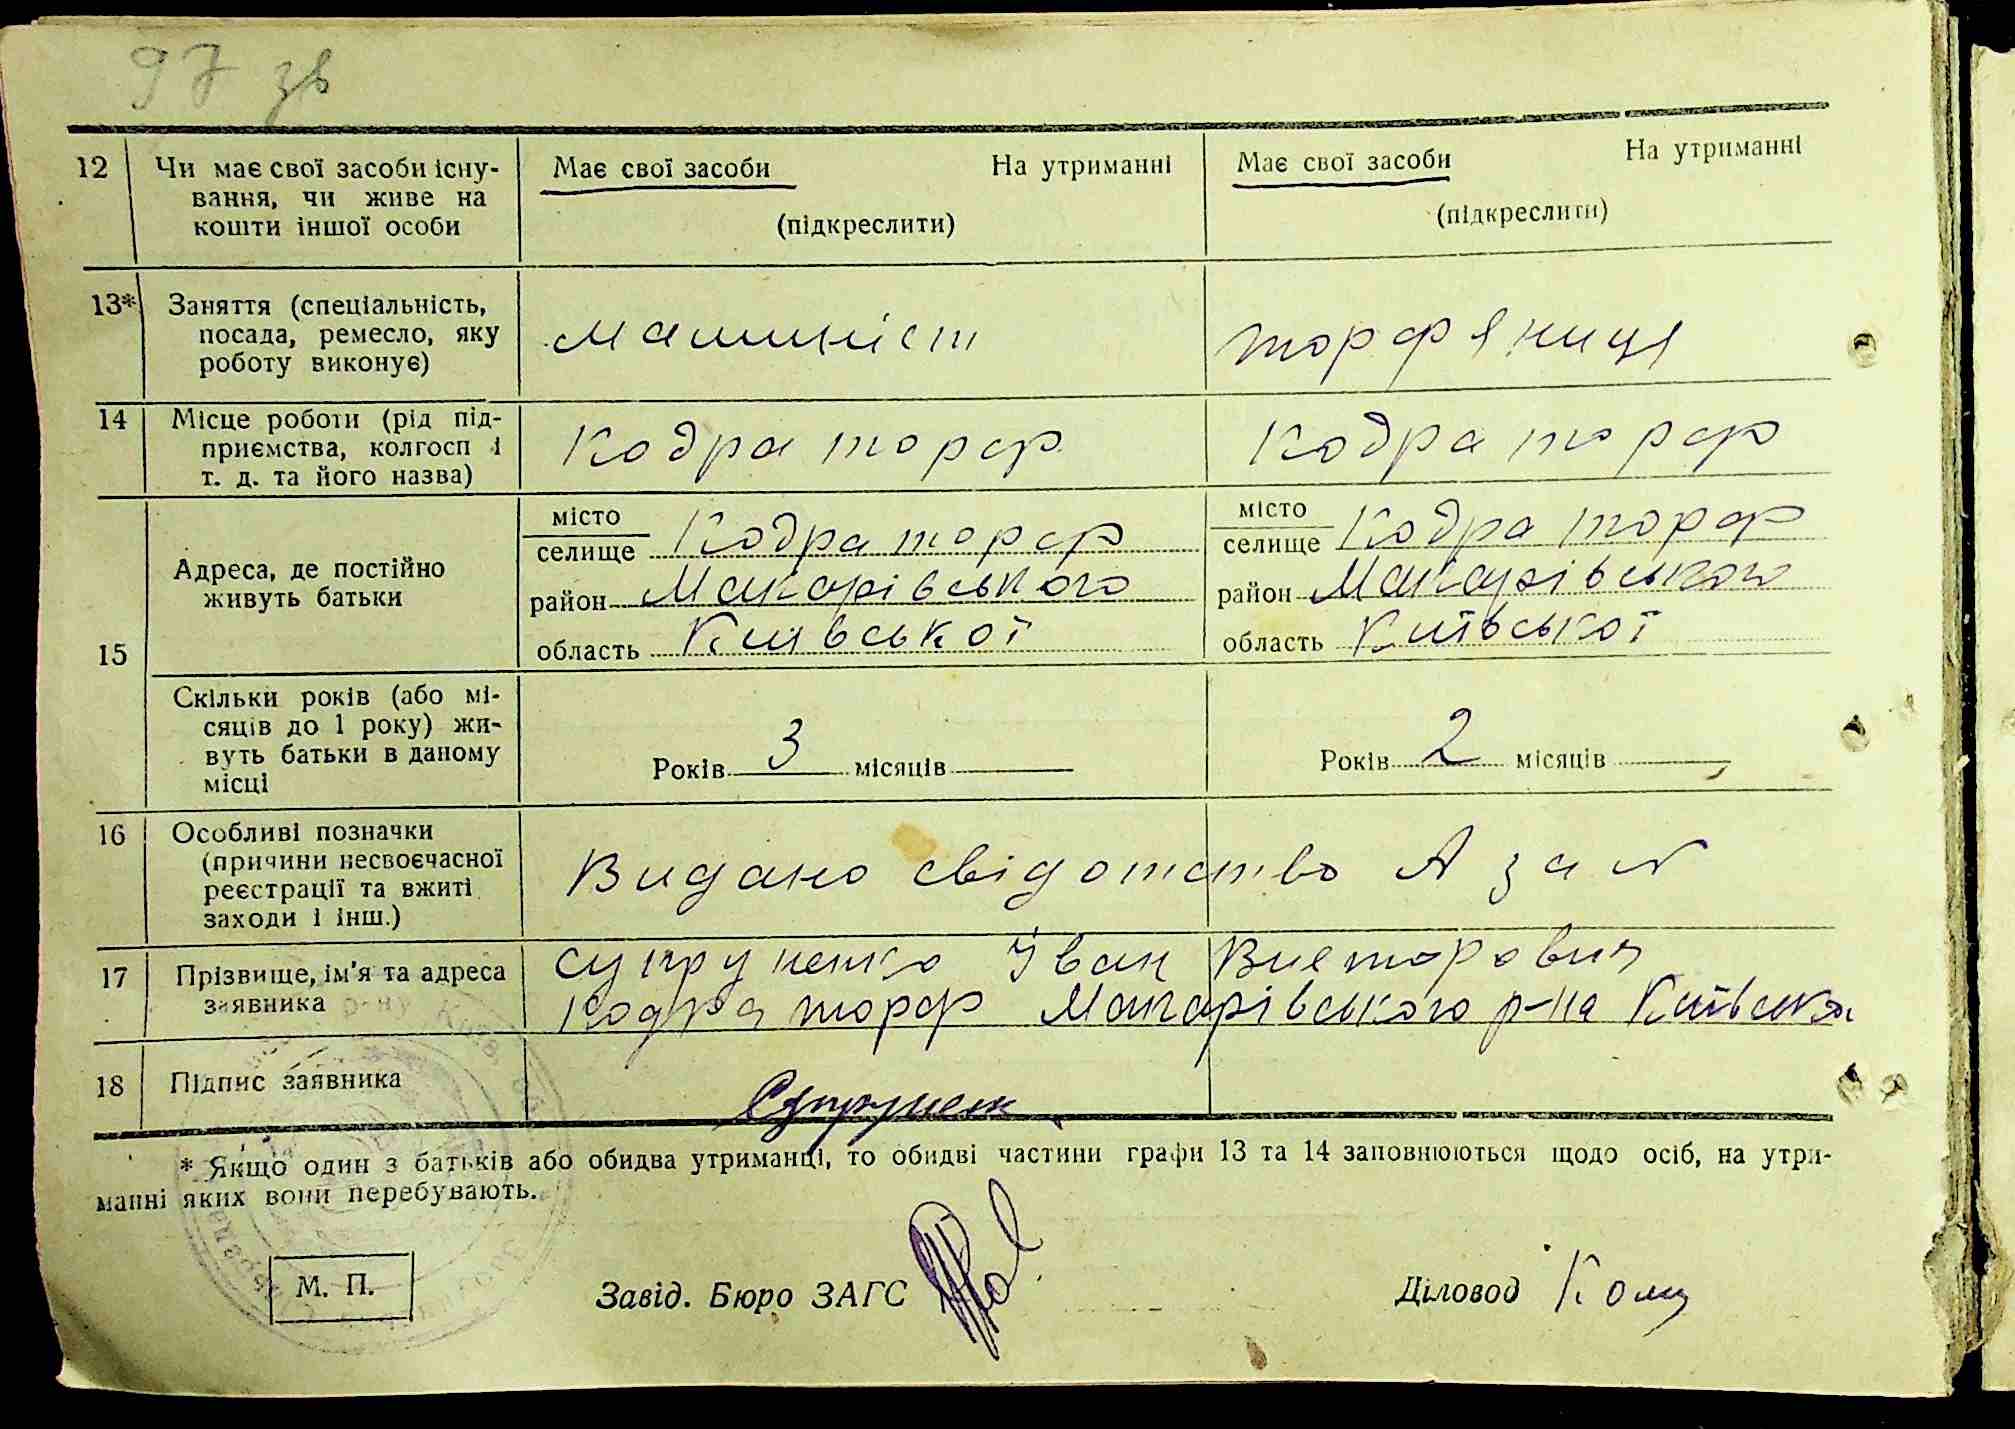 97 зв
12 Чи має свої засоби існу- Має свої засоби На утриманні Має свої засоби На утриманні
вання, чи живе на
кошти іншої особи (підкреслити) (підкреслити)
13* Заняття (спеціальність,
посада, ремесло, яку машиніст торфяниця
роботу виконує)
14 Місце роботи (рід під-
приємства, колгосп і Кодра торф Кодра торф
т. д. та його назва)
15 Адреса, де постійно
живуть батьки
місто місто
селище Кодра торф селище Кодра торф
район Макарівського район Макарівського
область Київської область Київської
Скільки років (або мі-
сяців до 1 року) жи-
вуть батьки в даному
місці
Років 3 місяців Років 2 місяців
16 Особливі позначки
(причини несвоєчасної Видано свідотство А за №
реєстрації та вжиті
заходи і інш.)
17 Прізвище, ім'я та адреса Супруненко Іван Викторович
заявника Кодра торф Макарівського р-на
18 Підпис заявника Супрунен
* Якщо один з батьків або обидва утриманці, то обидві частини графи 13 та 14 заповнюються щодо осіб, на утри-
манні яких вони перебувають.
М. П. Завід. Бюро ЗАГС Діловод